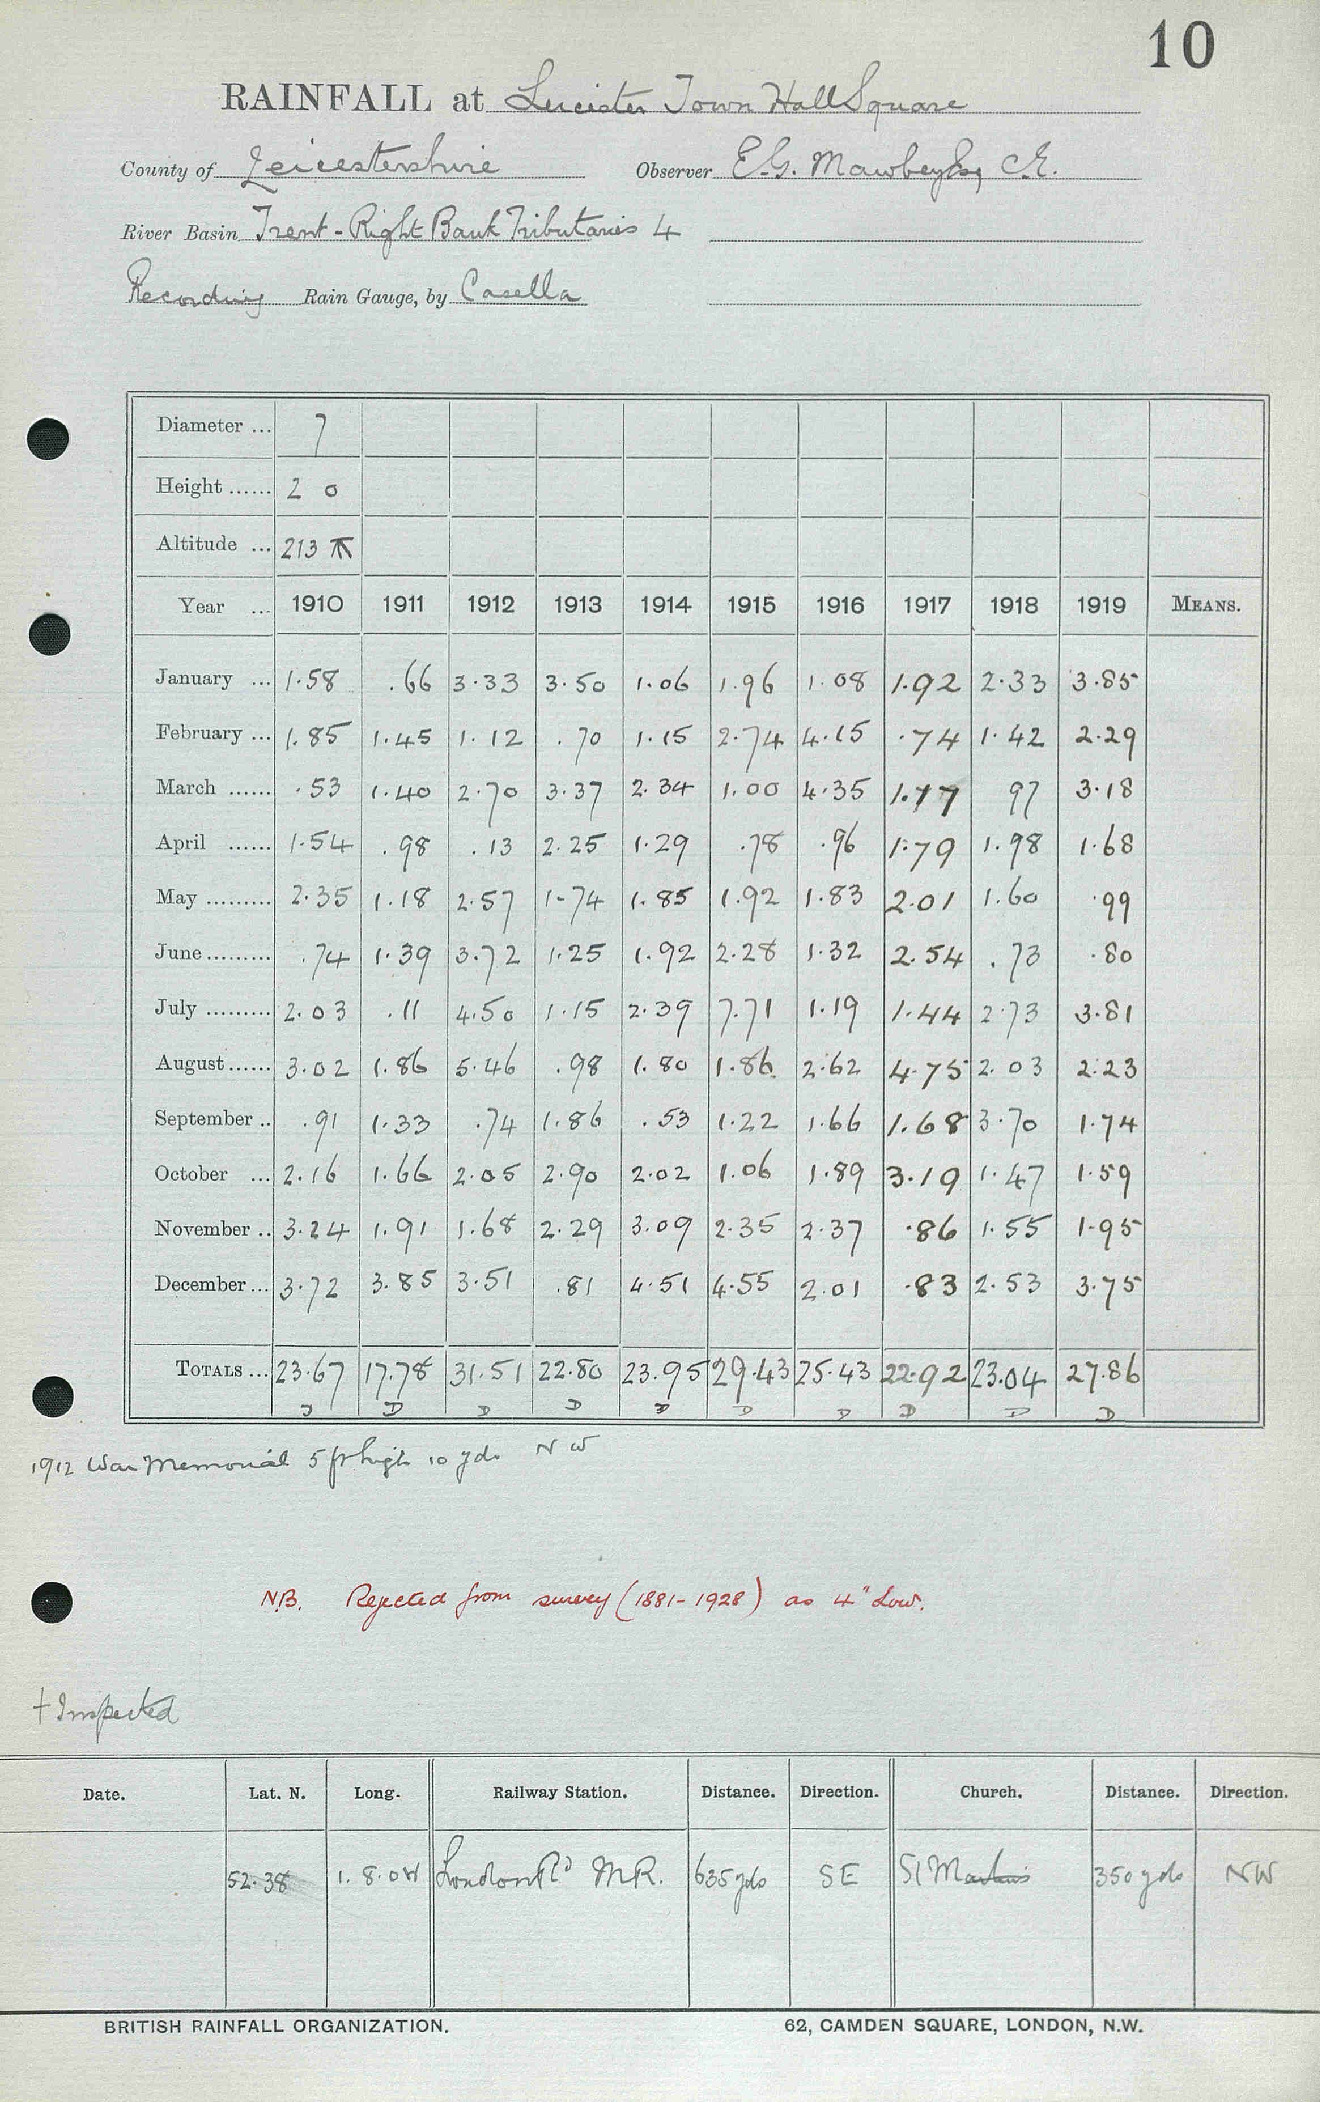 10
RAINFALL at Leicester Town Hall Square
County of Leicestershire Observer E.G. Mawbey Esq C.E.
River Basin Trent - Right Bank Tributaries 4
Recording Rain Gauge, by Casella
Diameter ... 7
Height ...... 2 0
Altitude ... 213
Year ... 1910 1911 1912 1913 1914 1915 1916 1917 1918 1919 MEANS.
January ... 1.58 .66 3.33 3.50 1.06 1.96 1.08 1.92 2.33 3.85
February ... 1.85 1.45 1.12 .70 1.15 2.74 4.15 .74 1.42 2.29
March ...... .53 1.40 2.70 3.37 2.34 1.00 4.35 1.77 97 3.18
April ...... 1.54 .98 .13 2.25 1.29 .78 .96 1.79 1.98 1.68
May ......... 2.35 1.18 2.57 1.74 1.85 1.92 1.83 2.01 1.60 .99
June ......... .74 1.39 3.72 1.25 1.92 2.28 1.32 2.54 .73 .80
July ......... 2.03 .11 4.50 1.15 2.39 7.71 1.19 1.44 2.73 3.81
August ...... 3.02 1.86 5.46 .98 1.80 1.86 2.62 4.75 2.03 2.23
September .. .91 1.33 .74 1.86 .53 1.22 1.66 1.68 3.70 1.74
October ... 2.16 1.66 2.05 2.90 2.02 1.06 1.89 3.19 1.47 1.59
November .. 3.24 1.91 1.68 2.29 3.09 2.35 2.37 .86 1.55 1.95
December ... 3.72 3.85 3.51 .81 4.51 4.55 2.01 .83 2.53 3.75
TOTALS ... 23.67 17.78 31.51 22.80 23.95 29.43 25.43 22.92 23.04 27.86
D D D D D D D D D D
1912 War Memorial 5 ft high 10 yds NW
N.B. Rejected from survey (1881-1928) as 4" Low.
† Inspected
Date. Lat. N. Long. Railway Station. Distance. Direction. Church. Distance. Direction.
52.38 1.8.0W London Rd M.R. 635 yds SE St Martins 350 yds NW
BRITISH RAINFALL ORGANIZATION. 62, CAMDEN SQUARE, LONDON, N.W.